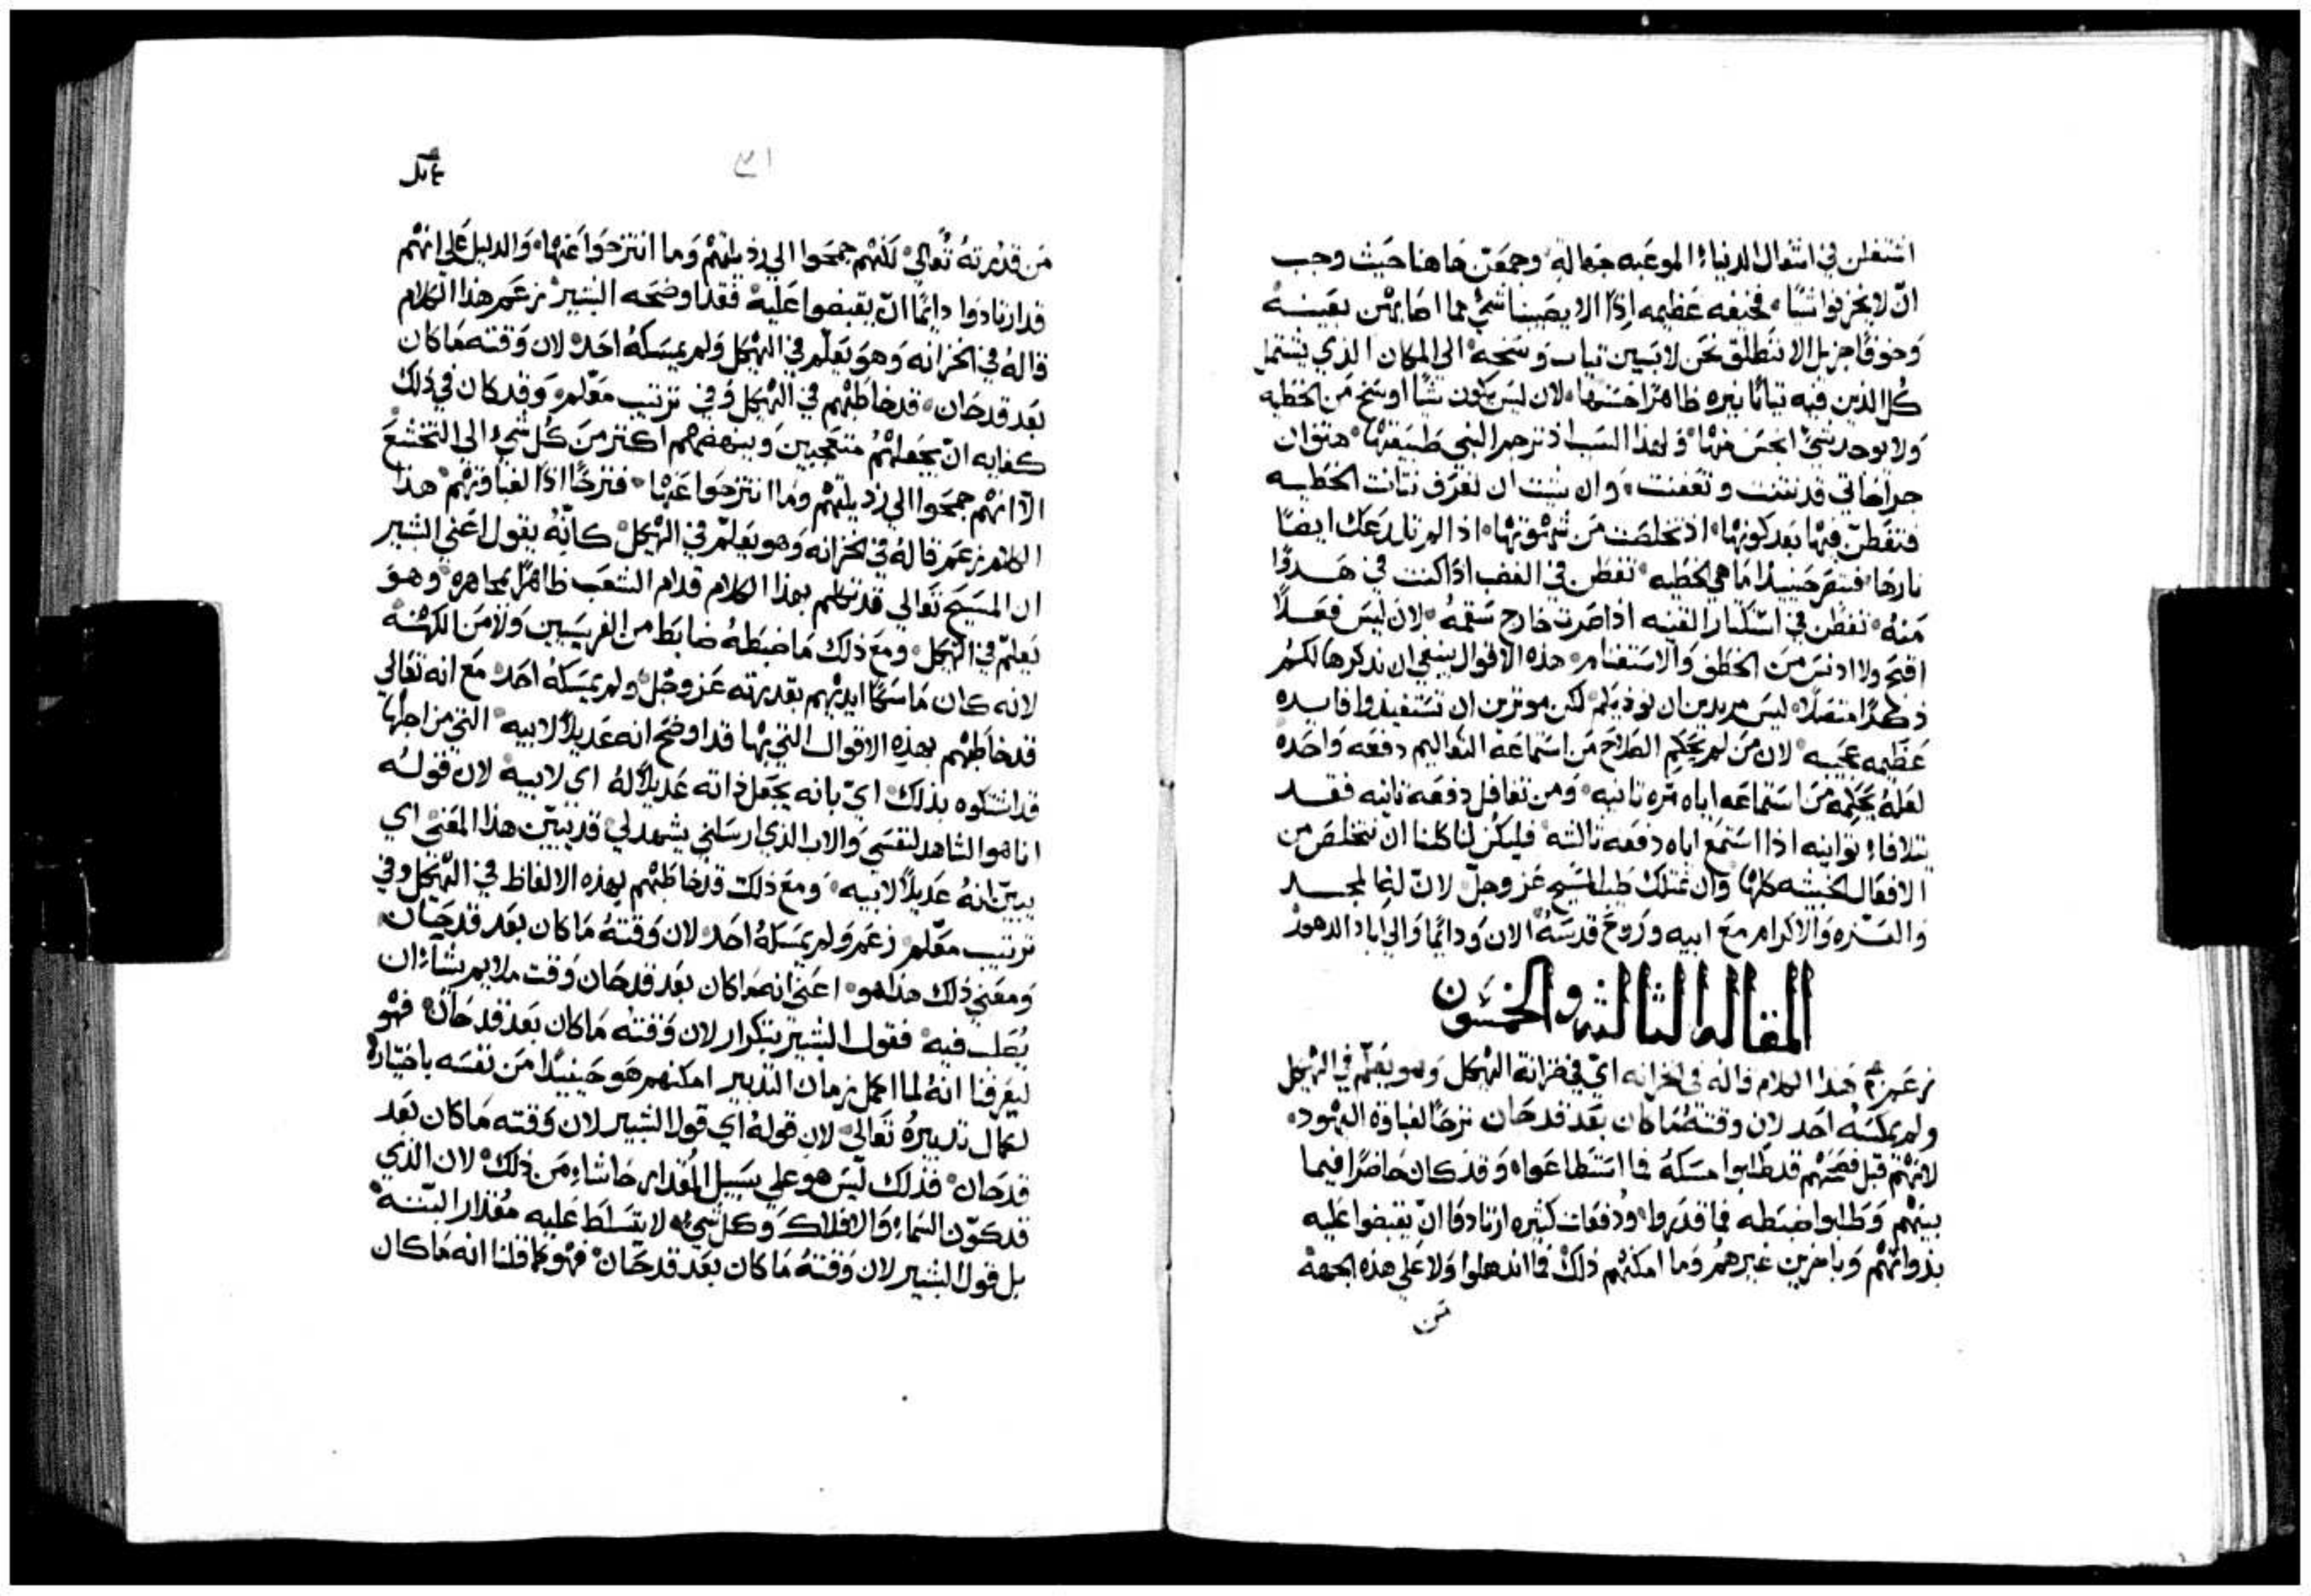 اشتغلن في اشغال الدنيا الموعبه جهالة وجمعن هاهنا حيث وجب
ان لا يخزنوا شيا فخيفه عظيمه اذا الا يصيبنا شي مما اصابهن بعينه
وخوفا جزيل الا ننطلق نحن لابسين ثياب وسخه الى المكان الذي يشتمل
كل الذين فيه ثيابا نيره ظاهرا حسنها لان ليس يكون شيا اوسخ من الخطيه
ولا يوجد شي انجس منها ولهذا السبب اذ ترجم النبي طبيعتها هتف ان
جراحاتي قد نتنت وتعفنت وان شيت ان تعرف نتانت الخطيه
فتفطن فيها بعد كونها اذ تخلصت من شهوتها اذا لم تلدعك ايضا
نارها فتبصر حينيذا ما هي الخطيه تفطن في الغضب اذا كنت في هدوا
منه تفطن في استكثار القنيه اذا صرت خارج سقمه لان ليس فعلا
اقبح ولا ادنس من الخطف والاستغنام هذه الاقوال ينبغي ان نذكرها لكم
ذكرا متصلا ليس مريدين ان نوذيكم لكن موثرين ان تستفيدوا فايده
عظيمه عجيبه لان من لم يحكم الصلاح من استماعه التعاليم دفعه واحده
لعله يحكمه من استماعه اياه مره ثانيه ومن تغافل دفعه ثانيه فقد
يتلافا توانيه اذا استمع اياه دفعه ثالثه فليكن لنا كلنا ان نتخلص من
الافعال الخبيثه كلها وان نمتلك طيب المسيح عز وجل لان لربنا المجد
والعزه والاكرام مع ابيه وروح قدسه الان ودائما والى اباد الدهور
المقاله الثالثه والخمسون
زعم هذا الكلام قاله في الخزانه اي في خزانة الهيكل وهو يعلم في الهيكل
ولم يمسكه احد لان وقته ما كان بعد قد حان ترحا لغباوة اليهود
لانهم قبل فصحهم قد طلبوا مسكه فما استطاعوا وقد كان حاضرا فيما
بينهم وطلبوا ضبطه فما قدروا ودفعات كثيره ارتادوا ان يقبضوا عليه
بذواتهم وباخرين غيرهم وما امكنهم ذلك فما اندهلوا ولا على هذه الجهة
من
٣١
من قدرته تعالى لكنهم جمحوا الى رذيلتهم وما انتزحوا عنها والدليل على انهم
قد ارتادوا دائما ان يقبضوا عليه فقد اوضحه البشير زعم هذا الكلام
قاله في الخزانه وهو يعلم في الهيكل ولم يمسكه احد لان وقته ما كان
بعد قد حان قد خاطبهم في الهيكل وفي ترتيب معلم وقد كان في ذلك
كفايه ان يجعلهم متعجبين وينهضهم اكثر من كل شي الى التخشع
الا انهم جمحوا الى رذيلتهم وما انتزحوا عنها فترحا اذا لغباوتهم هذا
الكلام زعم قاله في الخزانه وهو يعلم في الهيكل كانه يقول اعني البشير
ان المسيح تعالى قد تكلم بهذا الكلام قدام الشعب ظاهرا مجاهره وهو
يعلم في الهيكل ومع ذلك ما ضبطه ضابط من الفريسيين ولا من الكهنه
لانه كان ماسكا ايديهم بقدرته عز وجل ولم يمسكه احد مع انه تعالى
قد خاطبهم بهذه الاقوال التي بها قد اوضح انه عديلا لابيه التي من اجلها
قد اشتكوه بذلك اي بانه يجعل ذاته عديلا له اي لابيه لان قوله
انا هو الشاهد لنفسي والاب الذي ارسلني يشهد لي قد تبين هذا المعنى اي
يبين انه عديلا لابيه ومع ذلك قد خاطبهم بهذه الالفاظ في الهيكل وفي
ترتيب معلم زعم ولم يمسكه احد لان وقته ما كان بعد قد حان
ومعنى ذلك هذا هو اعني انه ما كان بعد قد حان وقت ملايم يشا ان
يصلب فيه فقول البشير بتكرار لان وقته ما كان بعد قد حان فهو
ليعرفنا انه لما اكمل زمان التدبير امكنهم هو حينيذا من نفسه باختياره
لكمال تدبيره تعالى لان قوله اي قول البشير لان وقته ما كان بعد
قد حان فذلك ليس هو على سبيل المقدار حاشاه من ذلك لان الذي
قد كون السما والافلاك وكل شي لا يتسلط عليه مقدار البتنه
بل قول البشير لان وقته ما كان بعد قد حان فهو كما قلنا انه ما كان